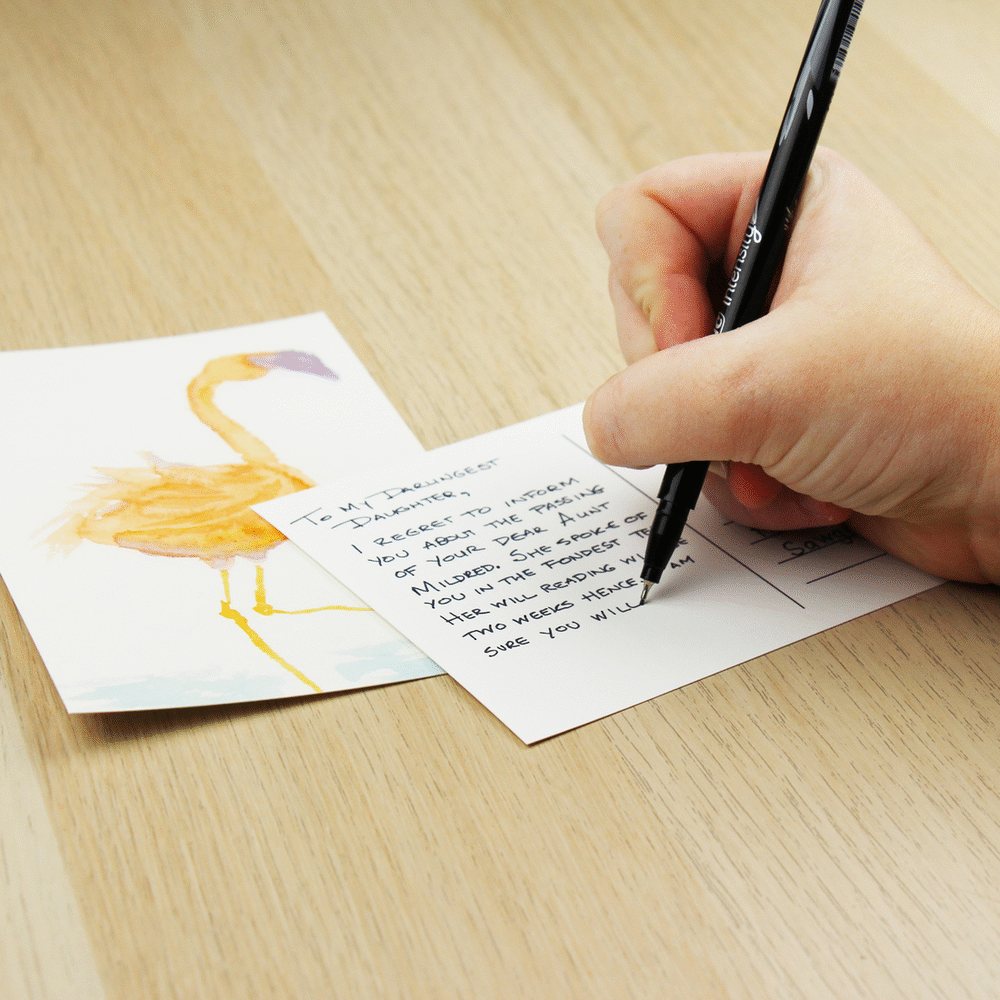 To My Darlingest
Daughter,
I regret to inform
you about the passing
of your dear Aunt
Mildred. She spoke of
you in the fondest te
Her will reading wi be
two weeks hence. I am
sure you will
intensity